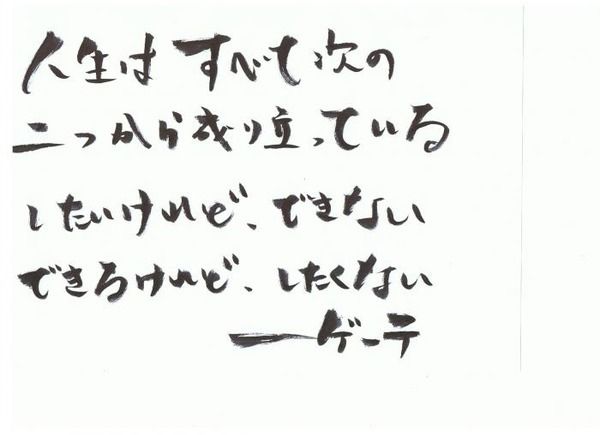 人生は すべて次の
二つから成り立っている
したいけれど、できない
できるけれど、したくない
──ゲーテ